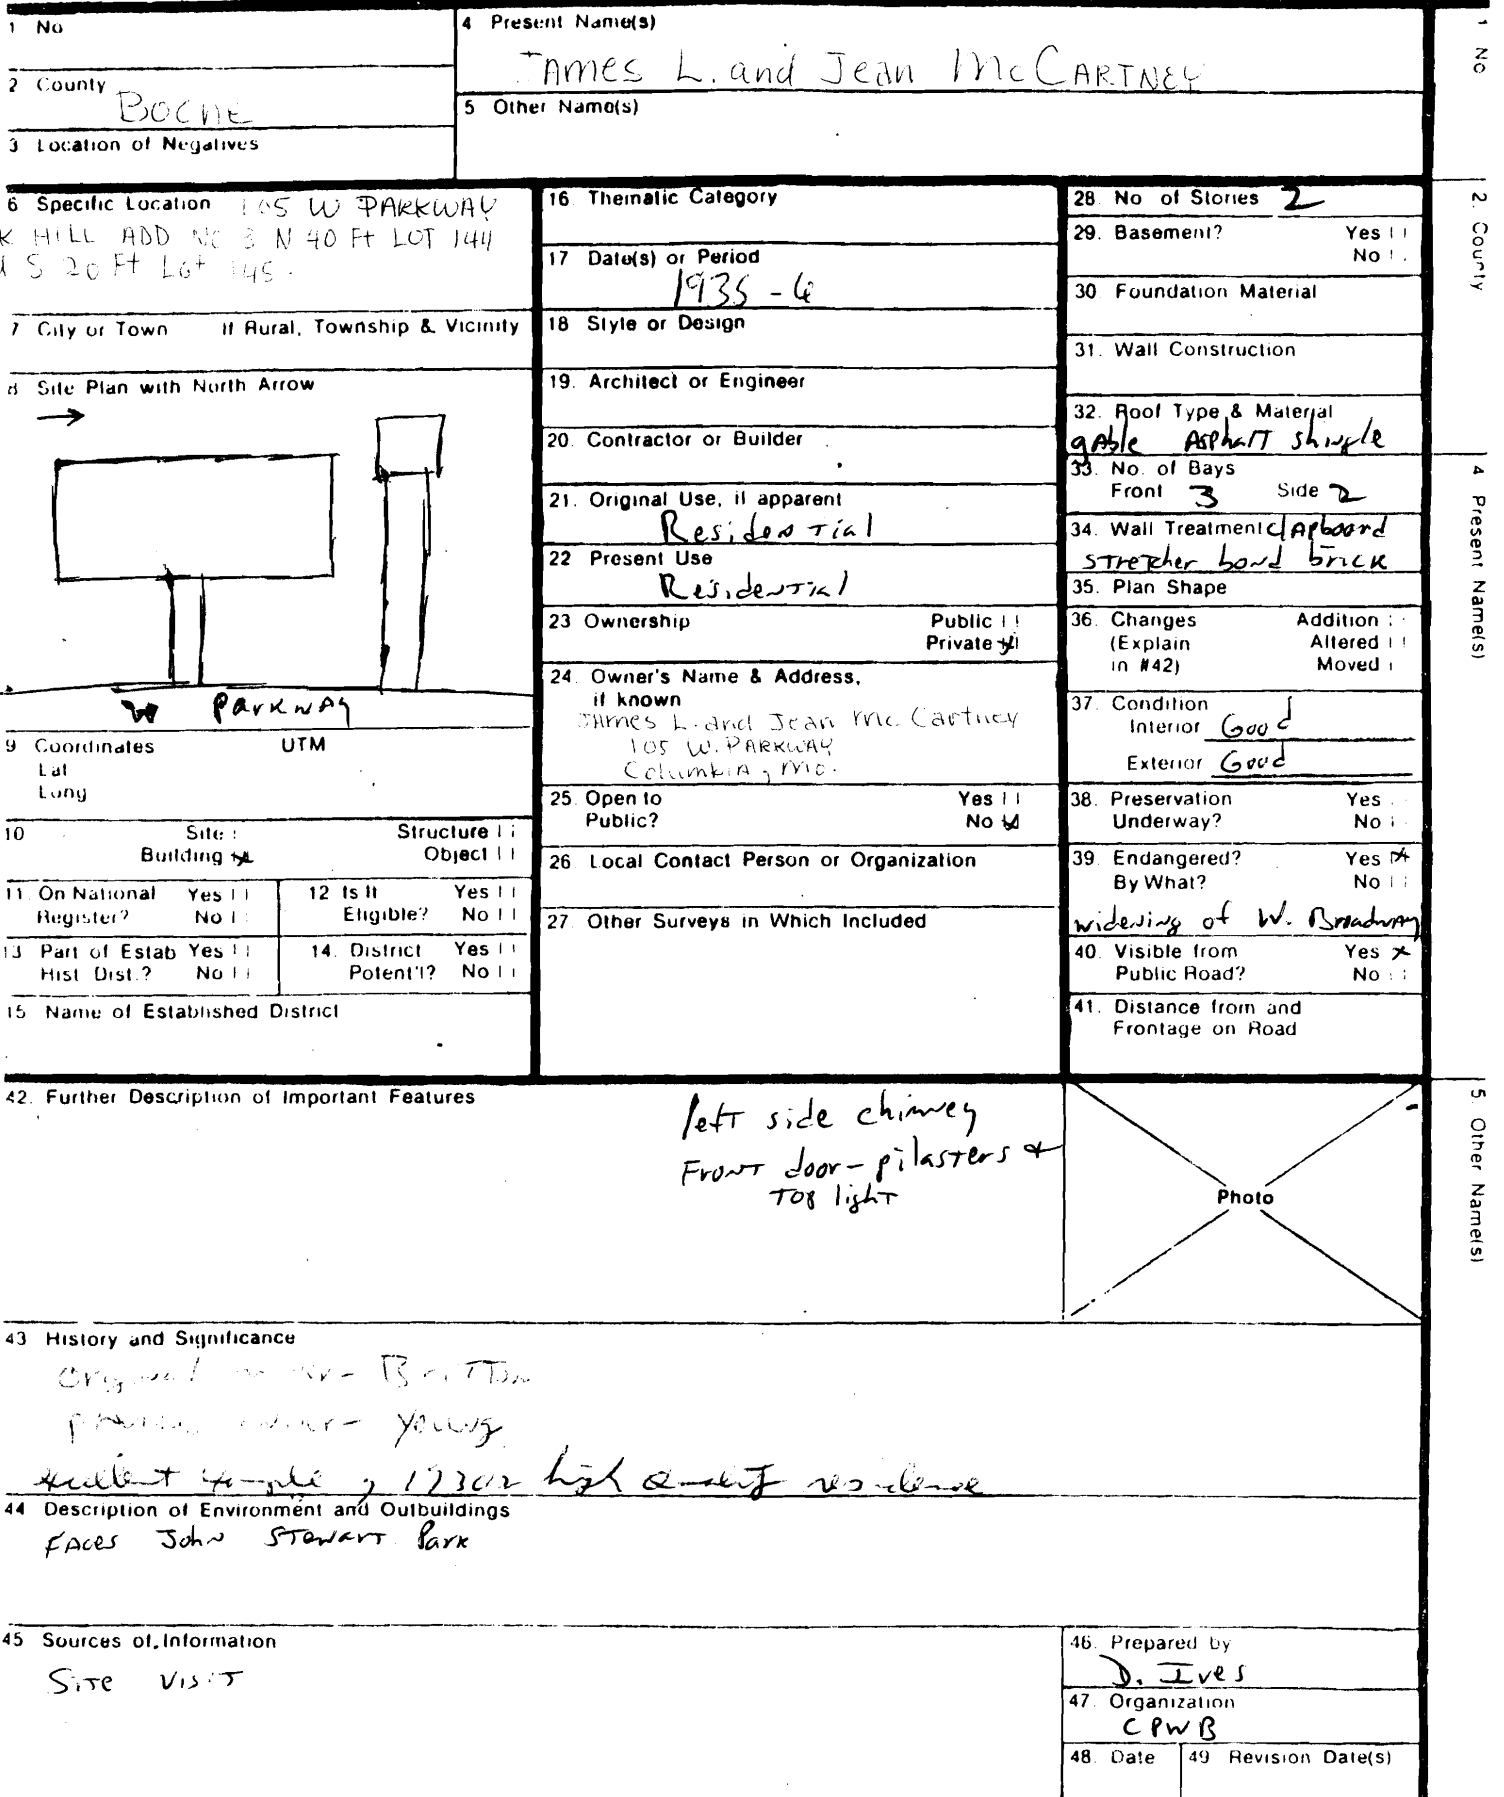 1 No
4 Present Name(s)
James L. and Jean McCartney
2 County
Boone
5 Other Name(s)
3 Location of Negatives
6 Specific Location 105 W PARKWAY
K HILL ADD NO 3 N 40 Ft LOT 144
S 20 Ft Lot 145.
7 City or Town If Rural, Township & Vicinity
8 Site Plan with North Arrow
W Parkway
9 Coordinates UTM
Lat
Long
10 Site
Structure
Building
Object
11. On National Register? Yes No
12 Is It Eligible? Yes No
13 Part of Estab Hist. Dist.? Yes No
14. District Potent'l? Yes No
15 Name of Established District
16. Thematic Category
17 Date(s) or Period
1935-6
18 Style or Design
19. Architect or Engineer
20. Contractor or Builder
21. Original Use, if apparent
Residential
22 Present Use
Residential
23 Ownership Public
Private
24. Owner's Name & Address,
if known
James L. and Jean McCartney
105 W. PARKWAY
Columbia, Mo.
25. Open to Public? Yes No
26. Local Contact Person or Organization
27. Other Surveys in Which Included
28. No of Stories 2
29. Basement? Yes
No
30. Foundation Material
31. Wall Construction
32. Roof Type & Material
gable Asphalt shingle
33. No. of Bays
Front 3 Side 2
34. Wall Treatment clapboard
stretcher bond brick
35. Plan Shape
36. Changes Addition
(Explain Altered
in #42) Moved
37. Condition
Interior Good
Exterior Good
38. Preservation Yes
Underway? No
39. Endangered? Yes
By What? No
widening of W. Broadway
40. Visible from Yes
Public Road? No
41. Distance from and
Frontage on Road
42. Further Description of Important Features
left side chimney
Front door - pilasters &
top light
Photo
43 History and Significance
Original owner - Britton
owner - Young
excellent example of 1930s high quality residence
44 Description of Environment and Outbuildings
Faces John Stewart Park
45 Sources of Information
Site Visit
46. Prepared by
D. Ives
47. Organization
CPWB
48. Date
49 Revision Date(s)
1 No
2. County
4 Present Name(s)
5. Other Name(s)